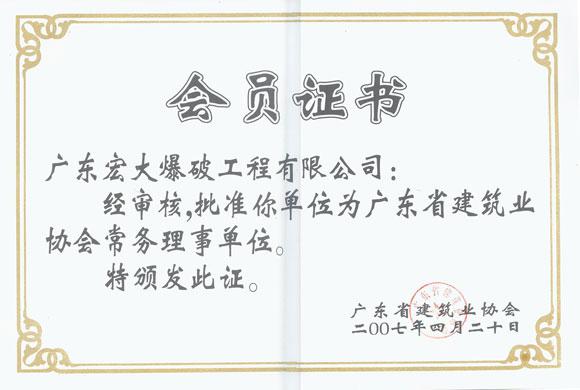 会员证书
广东宏大爆破工程有限公司：
经审核,批准你单位为广东省建筑业
协会常务理事单位。
特颁发此证。
广东省建筑业协会
二00七年四月二十日